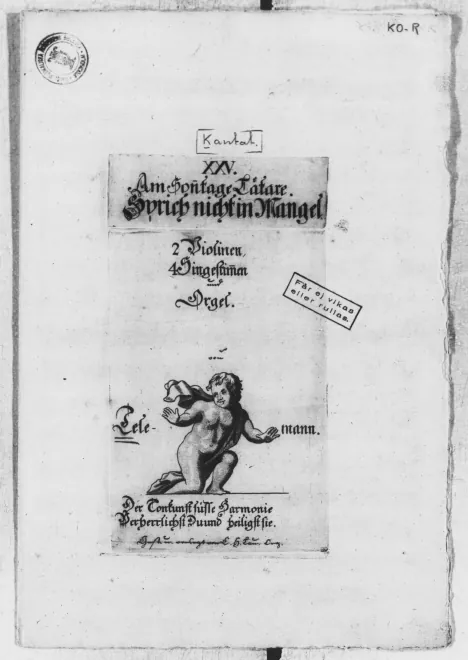 KO-R
Kantat.
XXV.
Am Soñtage Lätare.
Sprich nicht in Mangel
2 Violinen,
4 Singestim̄en
und
Orgel.
von
Tele- mann.
Der Tonkunst süsse Harmonie
Verherrlichst Du und heiligst sie.
Får ej vikas
eller rullas.